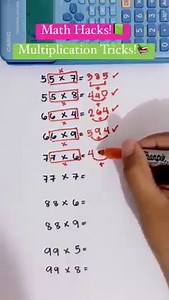 Math Hacks!
Multiplication Tricks!
55 × 7 = 385 ✓
55 × 8 = 440 ✓
66 × 4 = 264 ✓
66 × 9 = 594 ✓
77 × 6 = 4
77 × 7 =
88 × 6 =
88 × 9 =
99 × 5 =
99 × 8 =